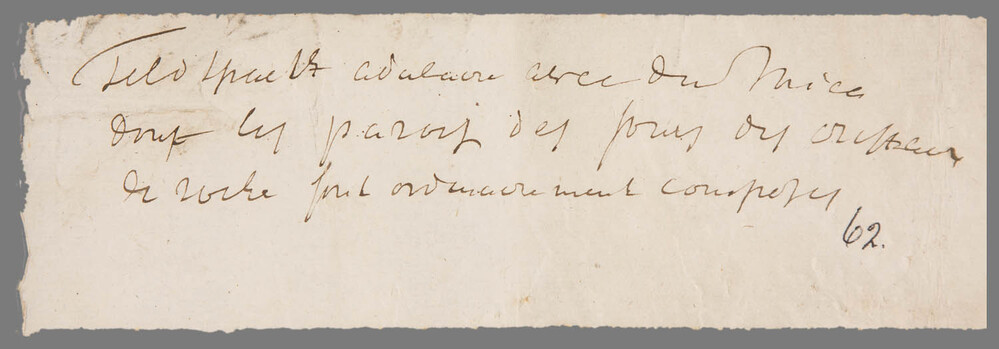 Feldspath adulaire avec du Mica
dont les parois des fours des cristaux
de roche sont ordinairement composés
62.